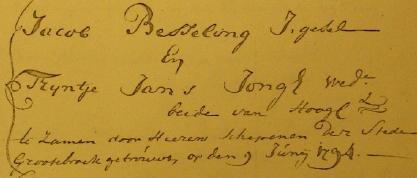 Jacob Besseling J.gesel
En
Tryntje Jans Jong wedr
beide van Hoog
te zamen door Heeren schepenen der Stede
Grootebroek getrouwt, op den 9 Juny 1794.